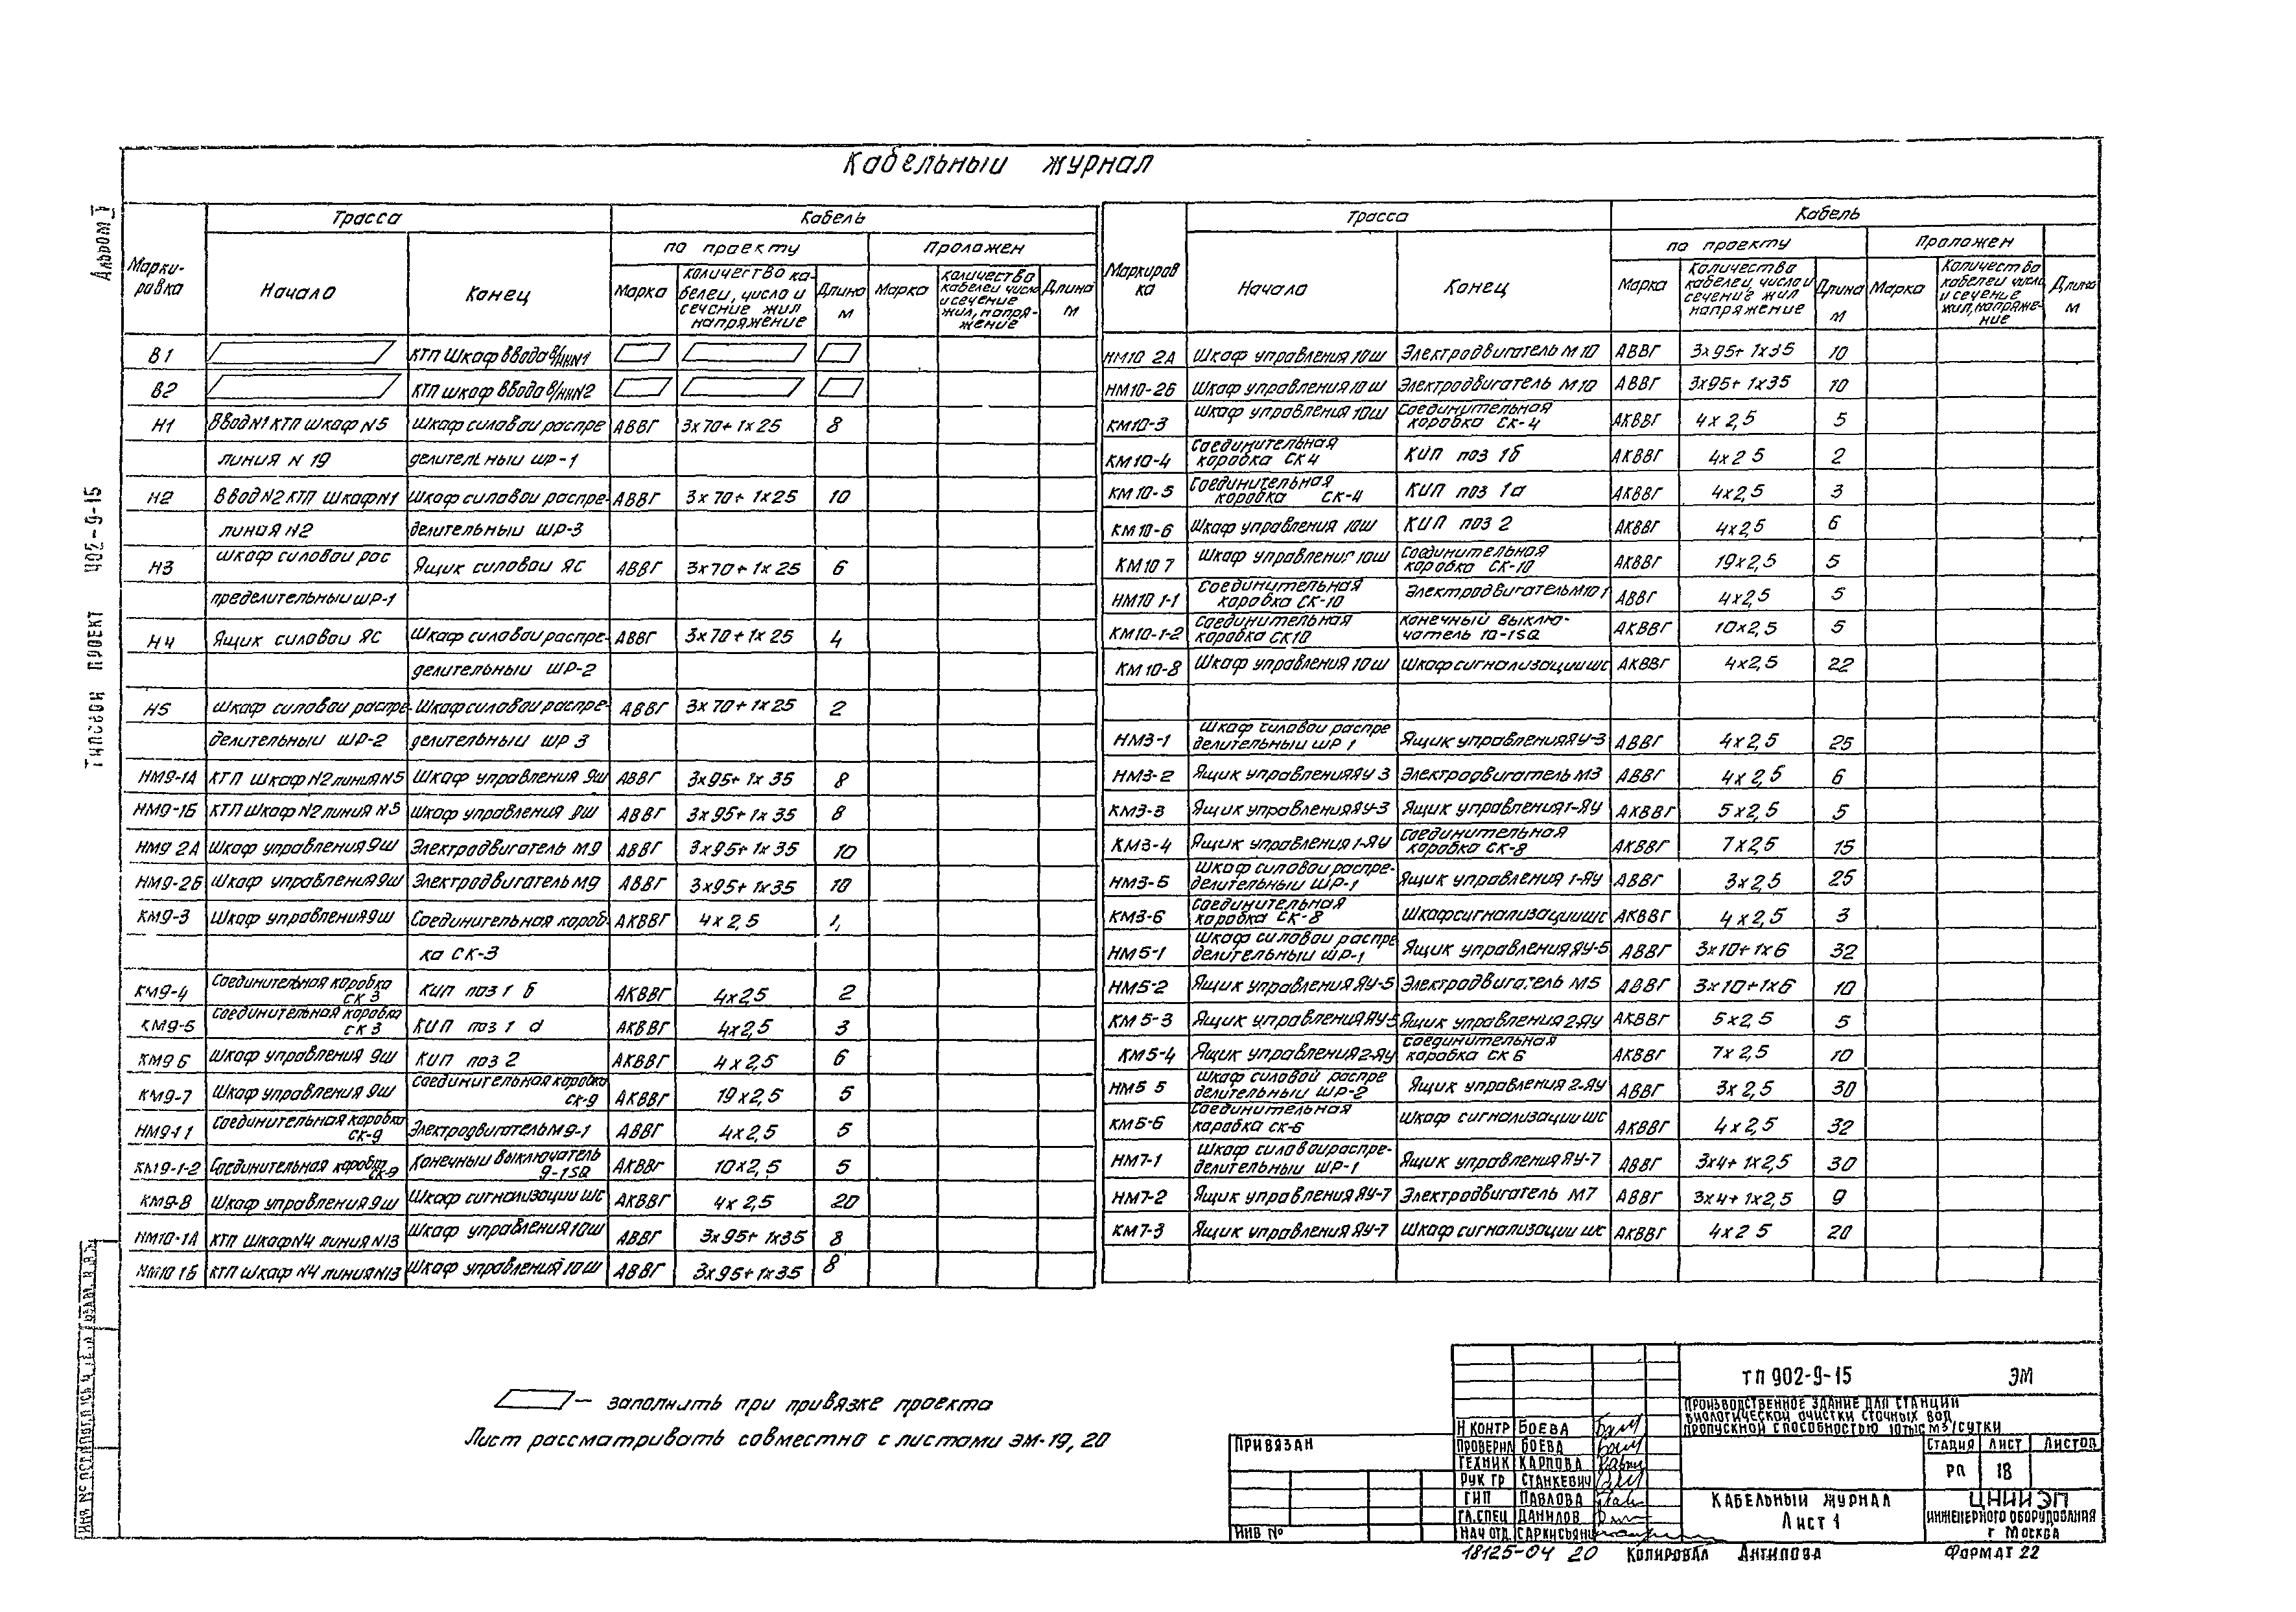 Кабельный журнал
Альбом V
Типовой проект 902-9-15
Марки-
ровка
Трасса
Кабель
Начало
Конец
по проекту
Проложен
Марка
Количество ка-
белей, число и
сечение жил
напряжение
Длина
м
Марка
Количество
кабелей число
и сечение
жил, напря-
жение
Длина
м
В1 КТП Шкаф ввода в/нн N1
В2 КТП шкаф ввода в/нн N2
Н1 Ввод N1 КТП шкаф N5 Шкаф силовой распре АВВГ 3х70+1х25 8
линия N 19 делительный ШР-1
Н2 Ввод N2 КТП шкаф N1 Шкаф силовой распре- АВВГ 3х70+1х25 10
линия N2 делительный ШР-3
Н3 шкаф силовой рас Ящик силовой ЯС АВВГ 3х70+1х25 6
пределительный ШР-1
Н4 Ящик силовой ЯС Шкаф силовой распре- АВВГ 3х70+1х25 4
делительный ШР-2
Н5 шкаф силовой распре- Шкаф силовой распре- АВВГ 3х70+1х25 2
делительный ШР-2 делительный ШР 3
НМ9-1А КТП шкаф N2 линия N5 Шкаф управления 9ш АВВГ 3х95+1х35 8
НМ9-1Б КТП шкаф N2 линия N5 Шкаф управления 9ш АВВГ 3х95+1х35 8
НМ9 2А Шкаф управления 9ш Электродвигатель М9 АВВГ 3х95+1х35 10
НМ9-2Б Шкаф управления 9ш Электродвигатель М9 АВВГ 3х95+1х35 10
КМ9-3 Шкаф управления 9ш Соединительная короб- АКВВГ 4х2,5
ка СК-3
КМ9-4 Соединительная коробка СК 3 КИП поз 1 б АКВВГ 4х25 2
КМ9-5 Соединительная коробка СК 3 КИП поз 1 а АКВВГ 4х2,5 3
КМ9 6 Шкаф управления 9ш КИП поз 2 АКВВГ 4х2,5 6
КМ9-7 Шкаф управления 9ш Соединительная коробка СК-9 АКВВГ 19х2,5 5
НМ9-1 1 Соединительная коробка СК-9 Электродвигатель М9-1 АВВГ 4х2,5 5
КМ9-1-2 Соединительная коробка СК-9 Конечный выключатель 9-1SQ АКВВГ 10х2,5 5
КМ9-8 Шкаф управления 9ш Шкаф сигнализации ШС АКВВГ 4х2,5 20
НМ10-1А КТП шкаф N4 линия N13 Шкаф управления 10ш АВВГ 3х95+1х35 8
НМ10 1Б КТП шкаф N4 линия N13 Шкаф управления 10ш АВВГ 3х95+1х35 8
Маркиров
ка
Трасса
Кабель
Начало
Конец
по проекту
Проложен
Марка
Количество
кабелей, число и
сечение жил
напряжение
Длина
м
Марка
Количество
кабелей число
и сечение
жил, напряже-
ние
Длина
м
НМ10 2А Шкаф управления 10ш Электродвигатель М10 АВВГ 3х95+1х35 10
НМ10-2Б Шкаф управления 10ш Электродвигатель М10 АВВГ 3х95+1х35 10
КМ10-3 Шкаф управления 10ш Соединительная коробка СК-4 АКВВГ 4х2,5 5
КМ10-4 Соединительная коробка СК 4 КИП поз 1б АКВВГ 4х2 5 2
КМ10-5 Соединительная коробка СК-4 КИП поз 1а АКВВГ 4х2,5 3
КМ10-6 Шкаф управления 10ш КИП поз 2 АКВВГ 4х2,5 6
КМ10 7 Шкаф управления 10ш Соединительная коробка СК-10 АКВВГ 19х2,5 5
НМ10 1-1 Соединительная коробка СК-10 Электродвигатель М10 1 АВВГ 4х2,5 5
КМ10-1-2 Соединительная коробка СК10 конечный выклю-чатель 10-1SQ АКВВГ 10х2,5 5
КМ10-8 Шкаф управления 10ш Шкаф сигнализации ШС АКВВГ 4х2,5 22
НМ3-1 Шкаф силовой распре делительный ШР 1 Ящик управления ЯУ-3 АВВГ 4х2,5 25
НМ3-2 Ящик управления ЯУ 3 Электродвигатель М3 АВВГ 4х2,5 6
КМ3-3 Ящик управления ЯУ-3 Ящик управления 1-ЯУ АКВВГ 5х2,5 5
КМ3-4 Ящик управления 1-ЯУ Соединительная коробка СК-8 АКВВГ 7х2,5 15
НМ3-5 Шкаф силовой распре-делительный ШР-1 Ящик управления 1-ЯУ АВВГ 3х2,5 25
КМ3-6 Соединительная коробка СК-8 Шкаф сигнализации ШС АКВВГ 4х2,5 3
НМ5-1 Шкаф силовой распре делительный ШР-1 Ящик управления ЯУ-5 АВВГ 3х10+1х6 32
НМ5-2 Ящик управления ЯУ-5 Электродвигатель М5 АВВГ 3х10+1х6 10
КМ5-3 Ящик управления ЯУ-5 Ящик управления 2-ЯУ АКВВГ 5х2 5 5
КМ5-4 Ящик управления 2-ЯУ соединительная коробка СК 6 АКВВГ 7х2,5 10
НМ5 5 Шкаф силовой распре делительный ШР-2 Ящик управления 2-ЯУ АВВГ 3х2,5 30
КМ5-6 Соединительная коробка СК-6 Шкаф сигнализации ШС АКВВГ 4х2,5 32
НМ7-1 Шкаф силовой распре-делительный ШР-1 Ящик управления ЯУ-7 АВВГ 3х4+1х2,5 30
НМ7-2 Ящик управления ЯУ-7 Электродвигатель М7 АВВГ 3х4+1х2,5 9
КМ7-3 Ящик управления ЯУ-7 Шкаф сигнализации ШС АКВВГ 4х2 5 20
— заполнить при привязке проекта
Лист рассматривать совместно с листами ЭМ-19, 20
Привязан
ИНВ №
Н КОНТР БОЕВА
ПРОВЕРИЛ БОЕВА
ТЕХНИК КАРПОВА
РУК ГР СТАНКЕВИЧ
ГИП ПАВЛОВА
ГЛ.СПЕЦ ДАНИЛОВ
НАЧ ОТД САРКИСЬЯНЦ
ТП 902-9-15 ЭМ
ПРОИЗВОДСТВЕННОЕ ЗДАНИЕ ДЛЯ СТАНЦИИ
БИОЛОГИЧЕСКОЙ ОЧИСТКИ СТОЧНЫХ ВОД
ПРОПУСКНОЙ СПОСОБНОСТЬЮ 10ТЫС М3/СУТКИ
СТАДИЯ ЛИСТ ЛИСТОВ
РП 18
КАБЕЛЬНЫЙ ЖУРНАЛ
Лист 1
ЦНИИЭП
ИНЖЕНЕРНОГО ОБОРУДОВАНИЯ
г МОСКВА
18125-04 20 КОПИРОВАЛ АНТИПОВА ФОРМАТ 22